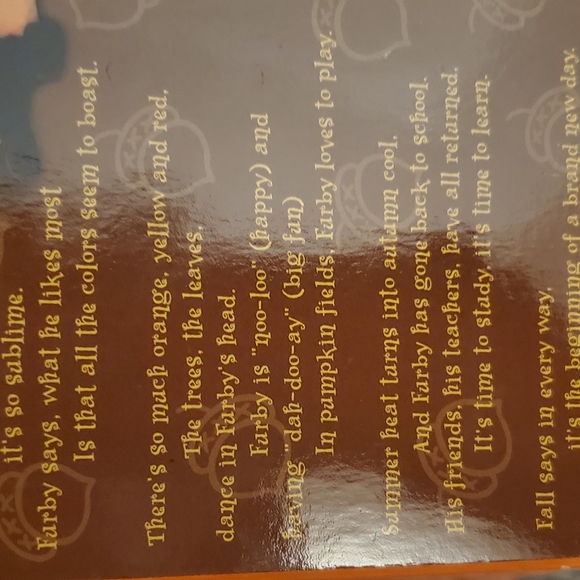 it's so sublime.
Furby says, what he likes most
Is that all the colors seem to boast.
There's so much orange, yellow and red,
The trees, the leaves,
dance in Furby's head.
Furby is "noo-loo" (happy) and
having "dah-doo-ay" (big fun)
In pumpkin fields Furby loves to play.
Summer heat turns into autumn cool,
And Furby has gone back to school.
His friends, his teachers, have all returned,
It's time to study, it's time to learn.
Fall says in every way,
it's the beginning of a brand new day.